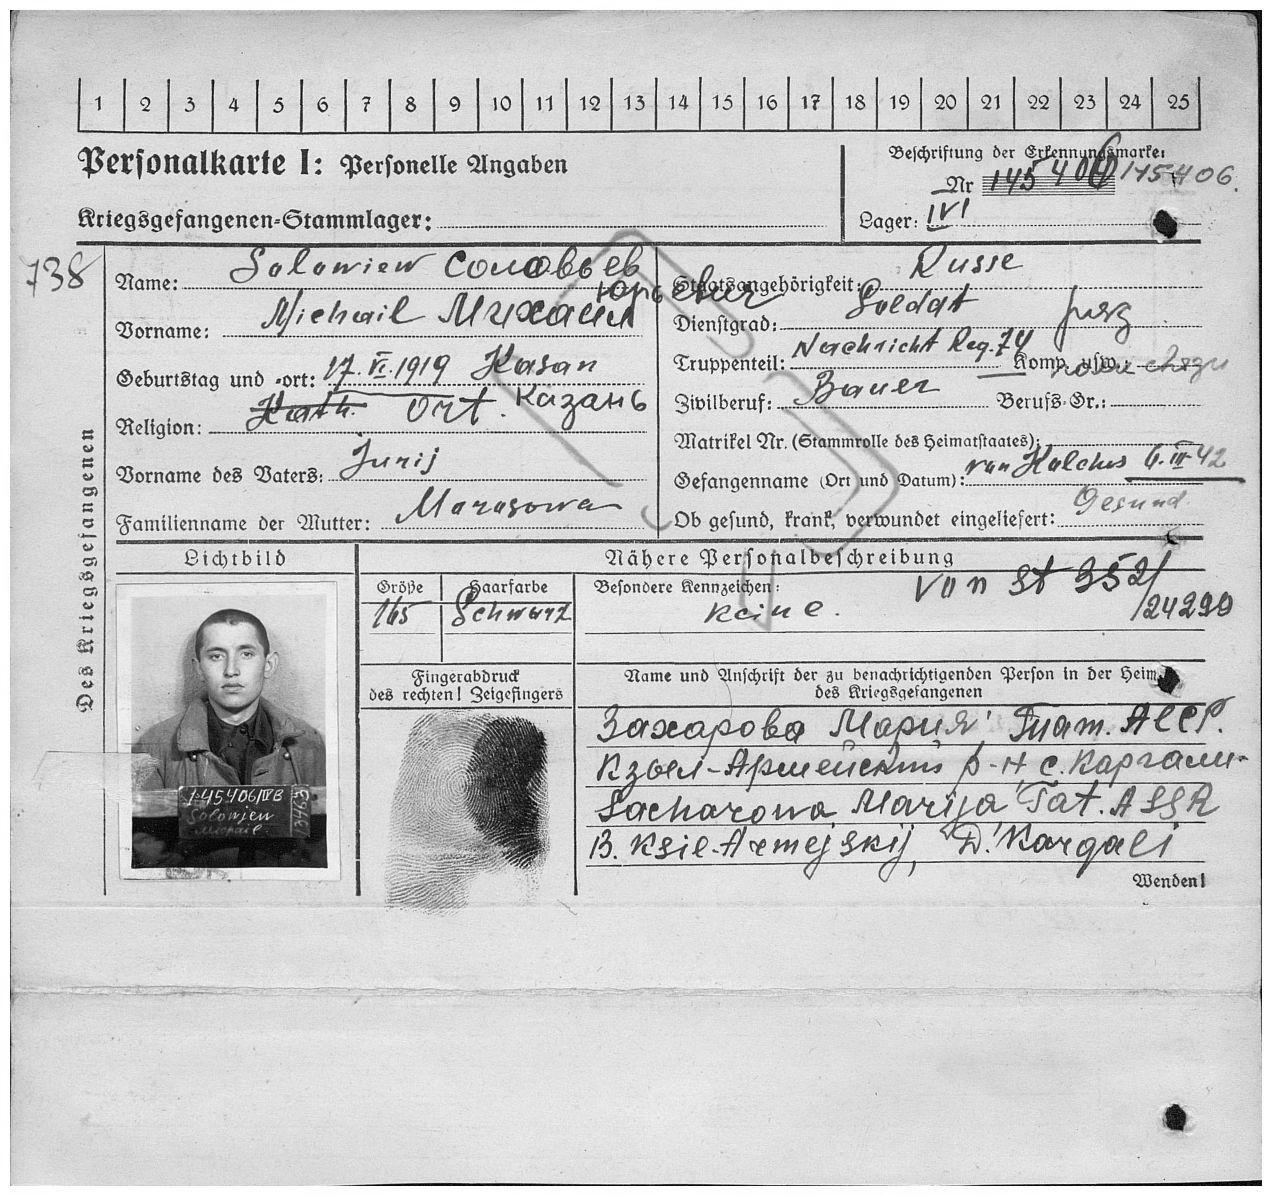 1 2 3 4 5 6 7 8 9 10 11 12 13 14 15 16 17 18 19 20 21 22 23 24 25
Personalkarte I: Personelle Angaben
Beschriftung der Erkennungsmarke:
Nr 145406 145406.
Kriegsgefangenen-Stammlager:
Lager: IVB
738
Des Kriegsgefangenen
Name: Solowiew Соловьев
Юрьевич
Vorname: Michail Михаил
Geburtstag und -ort: 17. VI. 1919 Kasan
Religion: Kath. Ort. Казань
Vorname des Vaters: Jurij
Familienname der Mutter: Marasowa
Staatsangehörigkeit: Russe
Dienstgrad: Soldat
Truppenteil: Nachricht Reg. 74 Komp. usw.:
Zivilberuf: Bauer Berufs-Gr.:
Matrikel Nr. (Stammrolle des Heimatstaates):
Gefangenname (Ort und Datum): 6. III 42
Ob gesund, krank, verwundet eingeliefert: Gesund
Lichtbild
145406 IVB
Solowjew
Michail.
Nähere Personalbeschreibung
Größe
165
Haarfarbe
Schwarz
Besondere Kennzeichen:
keine.
von St 352/
/24290
Fingerabdruck
des rechten! Zeigefingers
Name und Anschrift der zu benachrichtigenden Person in der Heimat
des Kriegsgefangenen
Захарова Мария Тат. АССР.
Кзыл-Армейский р-н с. Каргали
Sacharowa Marija Tat. ASSR
B. Ksil-Armejskij, D. Kargali
Wenden!